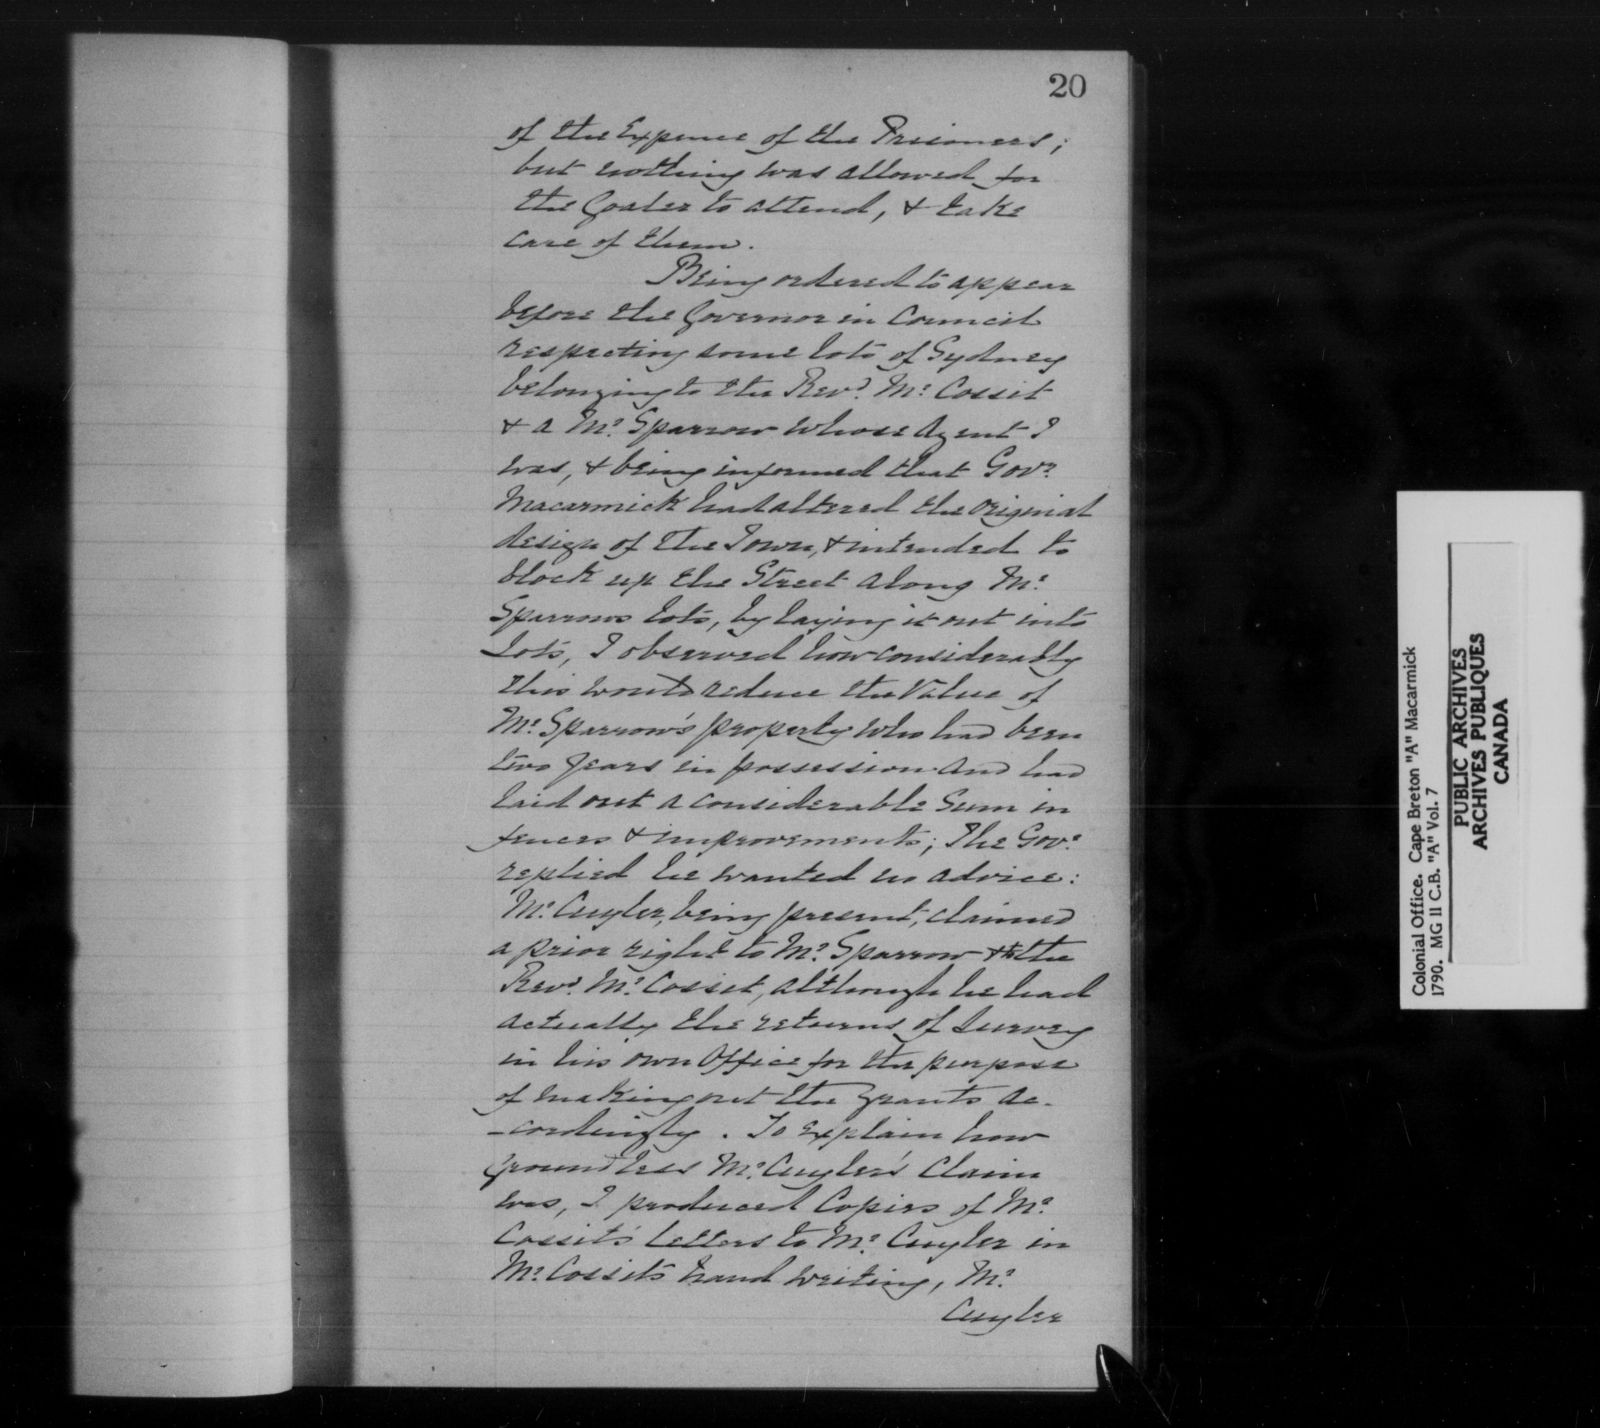 20
of the Expence of the Prisoners;
but nothing was allowed for
the Goaler to attend, & take
care of them.
Being ordered to appear
before the Governor in Council
respecting some lots of Sydney
belonging to the Revd. Mr. Cossit
& a Mr. Sparrow whose Agent I
was, & being informed that Govr.
Macarmick had altered the original
design of the Town, & intended to
block up the Street along Mr.
Sparrows lots, by laying it out into
Lots, I observed how considerably
this would reduce the Value of
Mr. Sparrow's property who had been
two years in possession and had
laid out a considerable Sum in
fences & improvements; The Govr.
replied he wanted no advice:
Mr. Cuyler, being present, claimed
a prior right to Mr. Sparrow & the
Revd. Mr. Cossit, although he had
actually the returns of Survey
in his own Office for the purpose
of making out the grants ac-
-cordingly. To explain how
groundless Mr. Cuyler's Claim
was, I produced Copies of Mr.
Cossit's Letters to Mr. Cuyler in
Mr. Cossit's hand writing, Mr.
Cuyler
Colonial Office. Cape Breton "A" Macarmick
1790. MG II C.B. "A" Vol. 7
PUBLIC ARCHIVES
ARCHIVES PUBLIQUES
CANADA